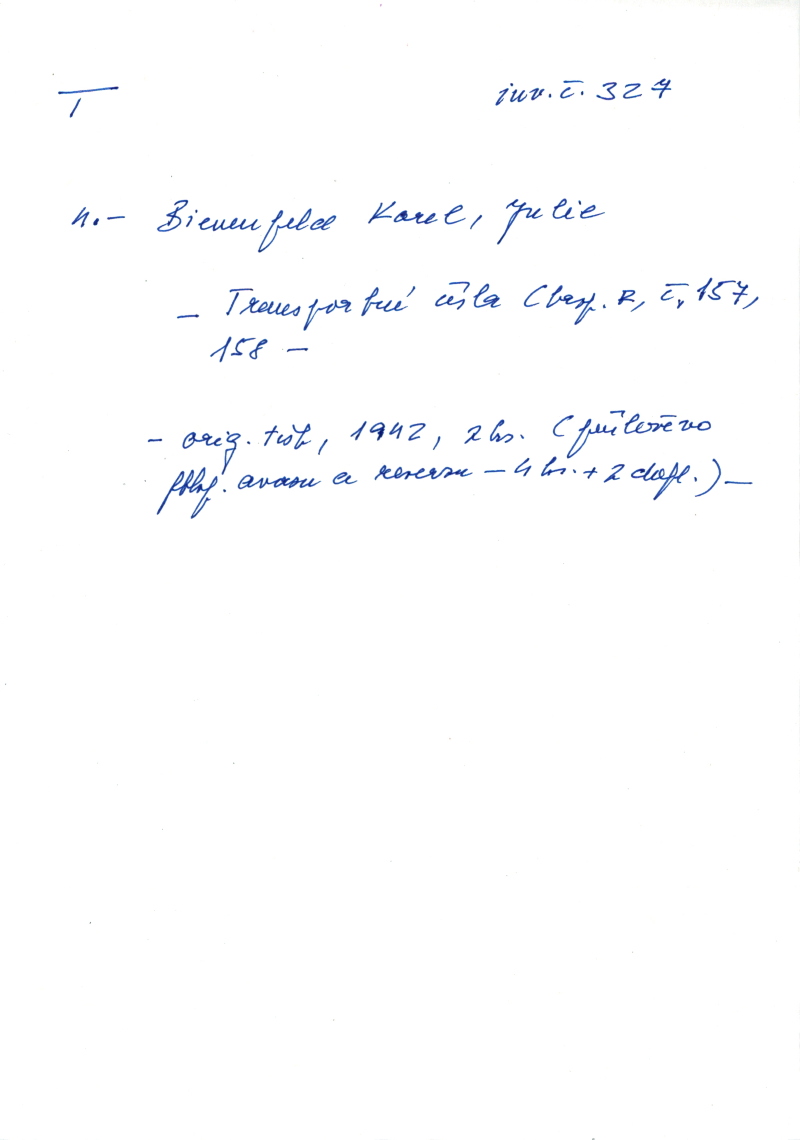 T inv. č. 327
n. – Bienenfeld Karel, Julie
– Transportní čísla (transp. R, č. 157,
158 –
– orig. tisk, 1942, 2 ks. (přiloženo
fotogr. aversu a reversu – 4 ks. + 2 dupl.) –